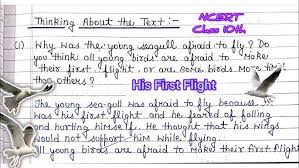 Thinking About the Text:-
NCERT
Class 10th.
(1) Why was the young seagull afraid to fly? Do
you think all young birds are afraid to make
their first flight, or are some birds more timid
than others?
His First Flight
The young seagull was afraid to fly because
was his first flight and he feared of falling
and hurting himself. He thought that his wings
would not support him while flying.
All young birds are afraid to make their first flight